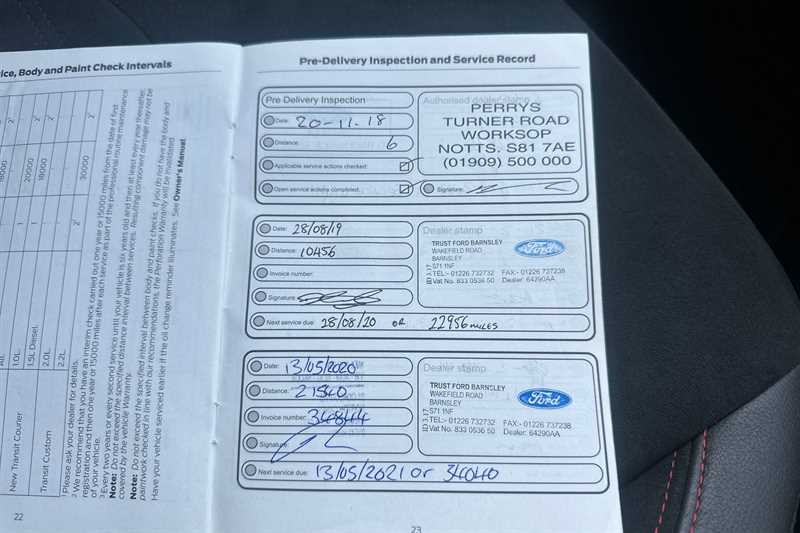 ice, Body and Paint Check Intervals
All.
1.0L
1.5L Diesel.
2.0L
2.2L
New Transit Courier
Transit Custom
1
1
20000
18000
30000
2'
1 Please ask your dealer for details.
2 We recommend that you have an interim check carried out one year or 15000 miles from the date of first
registration and then one year or 15000 miles after each service as part of the professional routine maintenance
of your vehicle.
3 Every two years or every second service until your vehicle is six years old and then at least every year thereafter.
Note: Do not exceed the specified distance interval between services. Resulting component damage may not be
covered by the vehicle Warranty.
Note: Do not exceed the specified interval between body and paint checks. If you do not have the body and
paintwork checked in line with our recommendations, the Perforation Warranty will be invalidated.
Have your vehicle serviced earlier if the oil change reminder illuminates. See Owner's Manual
22
Pre-Delivery Inspection and Service Record
Pre Delivery Inspection
Date: 20-11.18
Distance: 6
Applicable service actions checked:
Open service actions completed:
Authorised dealer stamp
PERRYS
TURNER ROAD
WORKSOP
NOTTS. S81 7AE
(01909) 500 000
Signature:
Date: 28/08/19
Distance: 10456
Invoice number:
Signature:
Dealer stamp
TRUST FORD BARNSLEY
WAKEFIELD ROAD
BARNSLEY
S71 1NF
TEL:- 01226 732732 FAX:- 01226 737238
Vat No. 833 0536 50 Dealer: 64290AA
Ford
Next service due: 28/08/20 OR 22956 MILES
Date: 13/05/2020
Distance: 21540
Invoice number: 34844
Signature:
Dealer stamp
TRUST FORD BARNSLEY
WAKEFIELD ROAD
BARNSLEY
S71 1NF
TEL:- 01226 732732 FAX:- 01226 737238
Vat No. 833 0536 50 Dealer: 64290AA
Ford
Next service due: 13/05/2021 or 34040
23